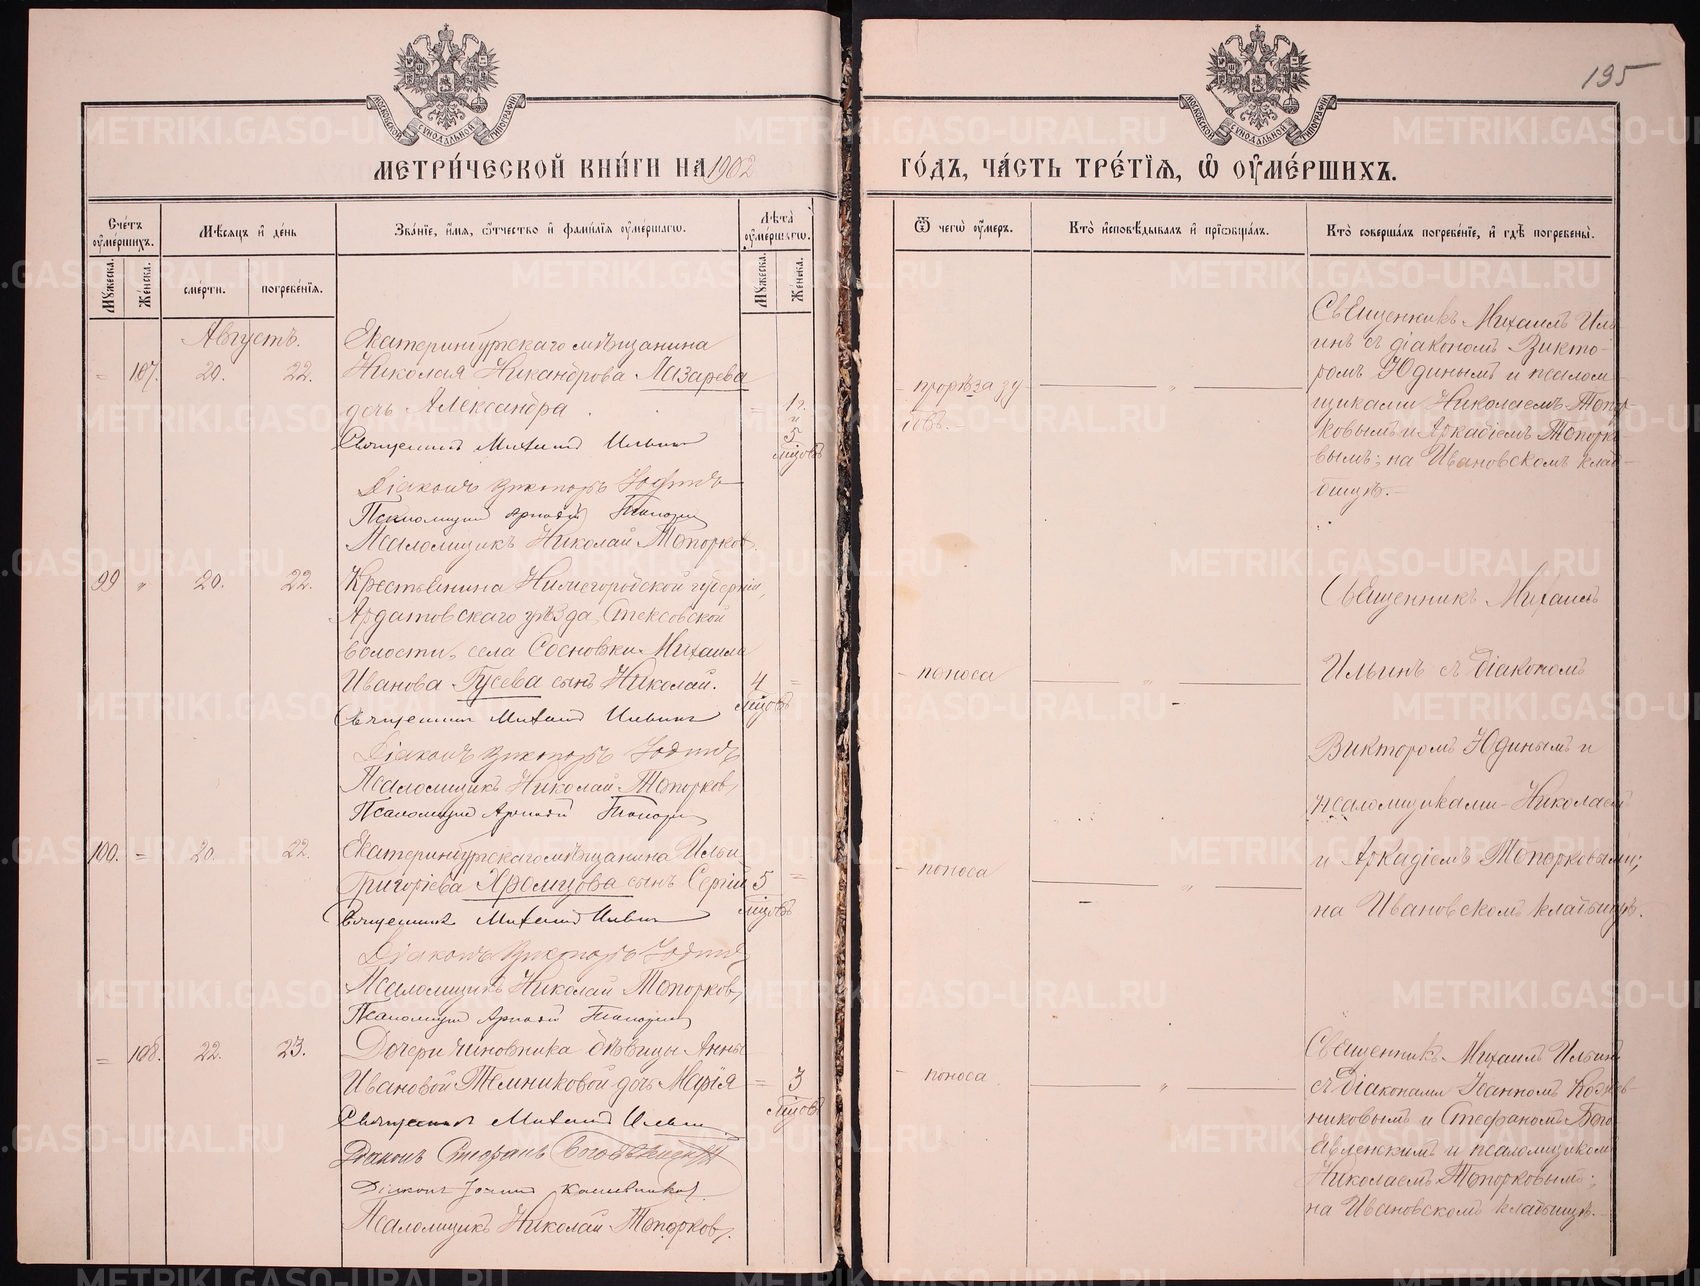 195
МОСКОВСКОЙ СѴНОДАЛЬНОЙ ТИПОГРАФІИ
МОСКОВСКОЙ СѴНОДАЛЬНОЙ ТИПОГРАФІИ
МЕТРИ́ЧЕСКОЙ КНИ́ГИ НА 1902
ГО́ДЪ, ЧА́СТЬ ТРЕ́ТІЯ, Ѿ ОУМЕ́РШИХЪ.
Сче́тъ оуме́ршихъ.
Мѣ́сяцъ и де́нь
Зва́нїе, и́мя, ѻ́тчество и фами́лїя оуме́ршагѡ.
Лѣ́та оуме́ршагѡ.
Му́жеска.
Же́нска.
сме́рти.
погребе́нїя.
Му́жеска.
Же́нска.
Ѿ чегѡ̀ оу́меръ.
Кто̀ исповѣ́дывалъ и прїѡбща́лъ.
Кто̀ соверша́лъ погребе́нїе, и гдѣ̀ погребены̀.
Августъ.
= 107. 20. 22.
Екатеринбургскаго мѣщанина
Николая Никандрова Лазарева
дочь Александра
= 1 г. и 5 мѣсцовъ
Священникъ Михаилъ Ильинъ
Діаконъ Викторъ Юдинъ
Псаломщикъ Аркадій Топорковъ
Псаломщикъ Николай Топорковъ
- прорѣза зу-
бовъ.
Священникъ Михаилъ Иль-
инъ съ діакономъ Викто-
ромъ Юдинымъ и псалом-
щиками Николаемъ Топор-
ковымъ и Аркадіемъ Топорко-
вымъ; на Ивановскомъ клад-
бищѣ.-
99 " 20. 22.
Крестьянина Нижегородской губерніи,
Ардатовскаго уѣзда, Стексовской
волости, села Сосновки Михаила
Иванова Гусева сынъ Николай.
4 мѣсцовъ =
Священникъ Михаилъ Ильинъ
Діаконъ Викторъ Юдинъ
Псаломщикъ Николай Топорковъ
Псаломщикъ Аркадій Топорковъ
- поноса
Священникъ Михаилъ
Ильинъ съ діакономъ
Викторомъ Юдинымъ и
псаломщиками Николаемъ
и Аркадіемъ Топорковыми;
на Ивановскомъ кладбищѣ.
100. = 20. 22.
Екатеринбургскаго мѣщанина Ильи
Григоріева Хромцова сынъ Сергій
5 мѣсцовъ =
Священникъ Михаилъ Ильинъ
Діаконъ Викторъ Юдинъ
Псаломщикъ Николай Топорковъ
Псаломщикъ Аркадій Топорковъ
- поноса
= 108. 22. 23.
Дочери чиновника дѣвицы Анны
Ивановой Темниковой дочь Марія
= 3 мѣсцовъ
Священникъ Михаилъ Ильинъ
Діаконъ Стефанъ Богоявленскій
Діаконъ Іоаннъ
Псаломщикъ Николай Топорковъ.
- поноса
Священникъ Михаилъ Ильинъ
съ діаконами Іоанномъ
никовымъ и Стефаномъ Бого-
явленскимъ и псаломщикомъ
Николаемъ Топорковымъ;
на Ивановскомъ кладбищѣ.
METRIKI.GASO-URAL.RU